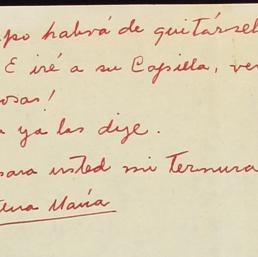 po habrá de quitársel
E iré a su Capilla, ver
osas!
a ya las dije.
para usted mi ternura
María